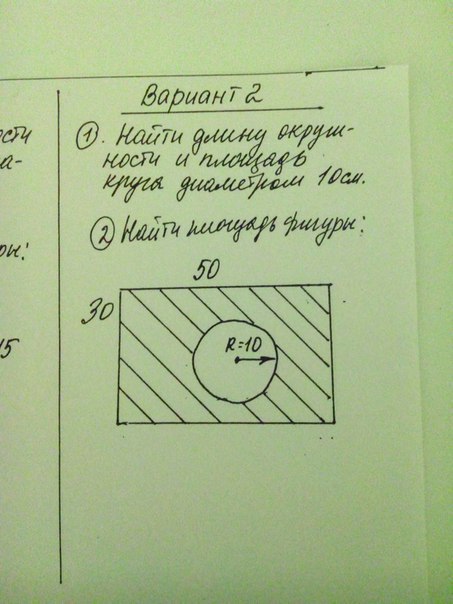 Вариант 2
① Найти длину окруж-
ности и площадь
круга диаметром 10см.
② Найти площадь фигуры:
50
30
R=10
ости
а-
ры:
15